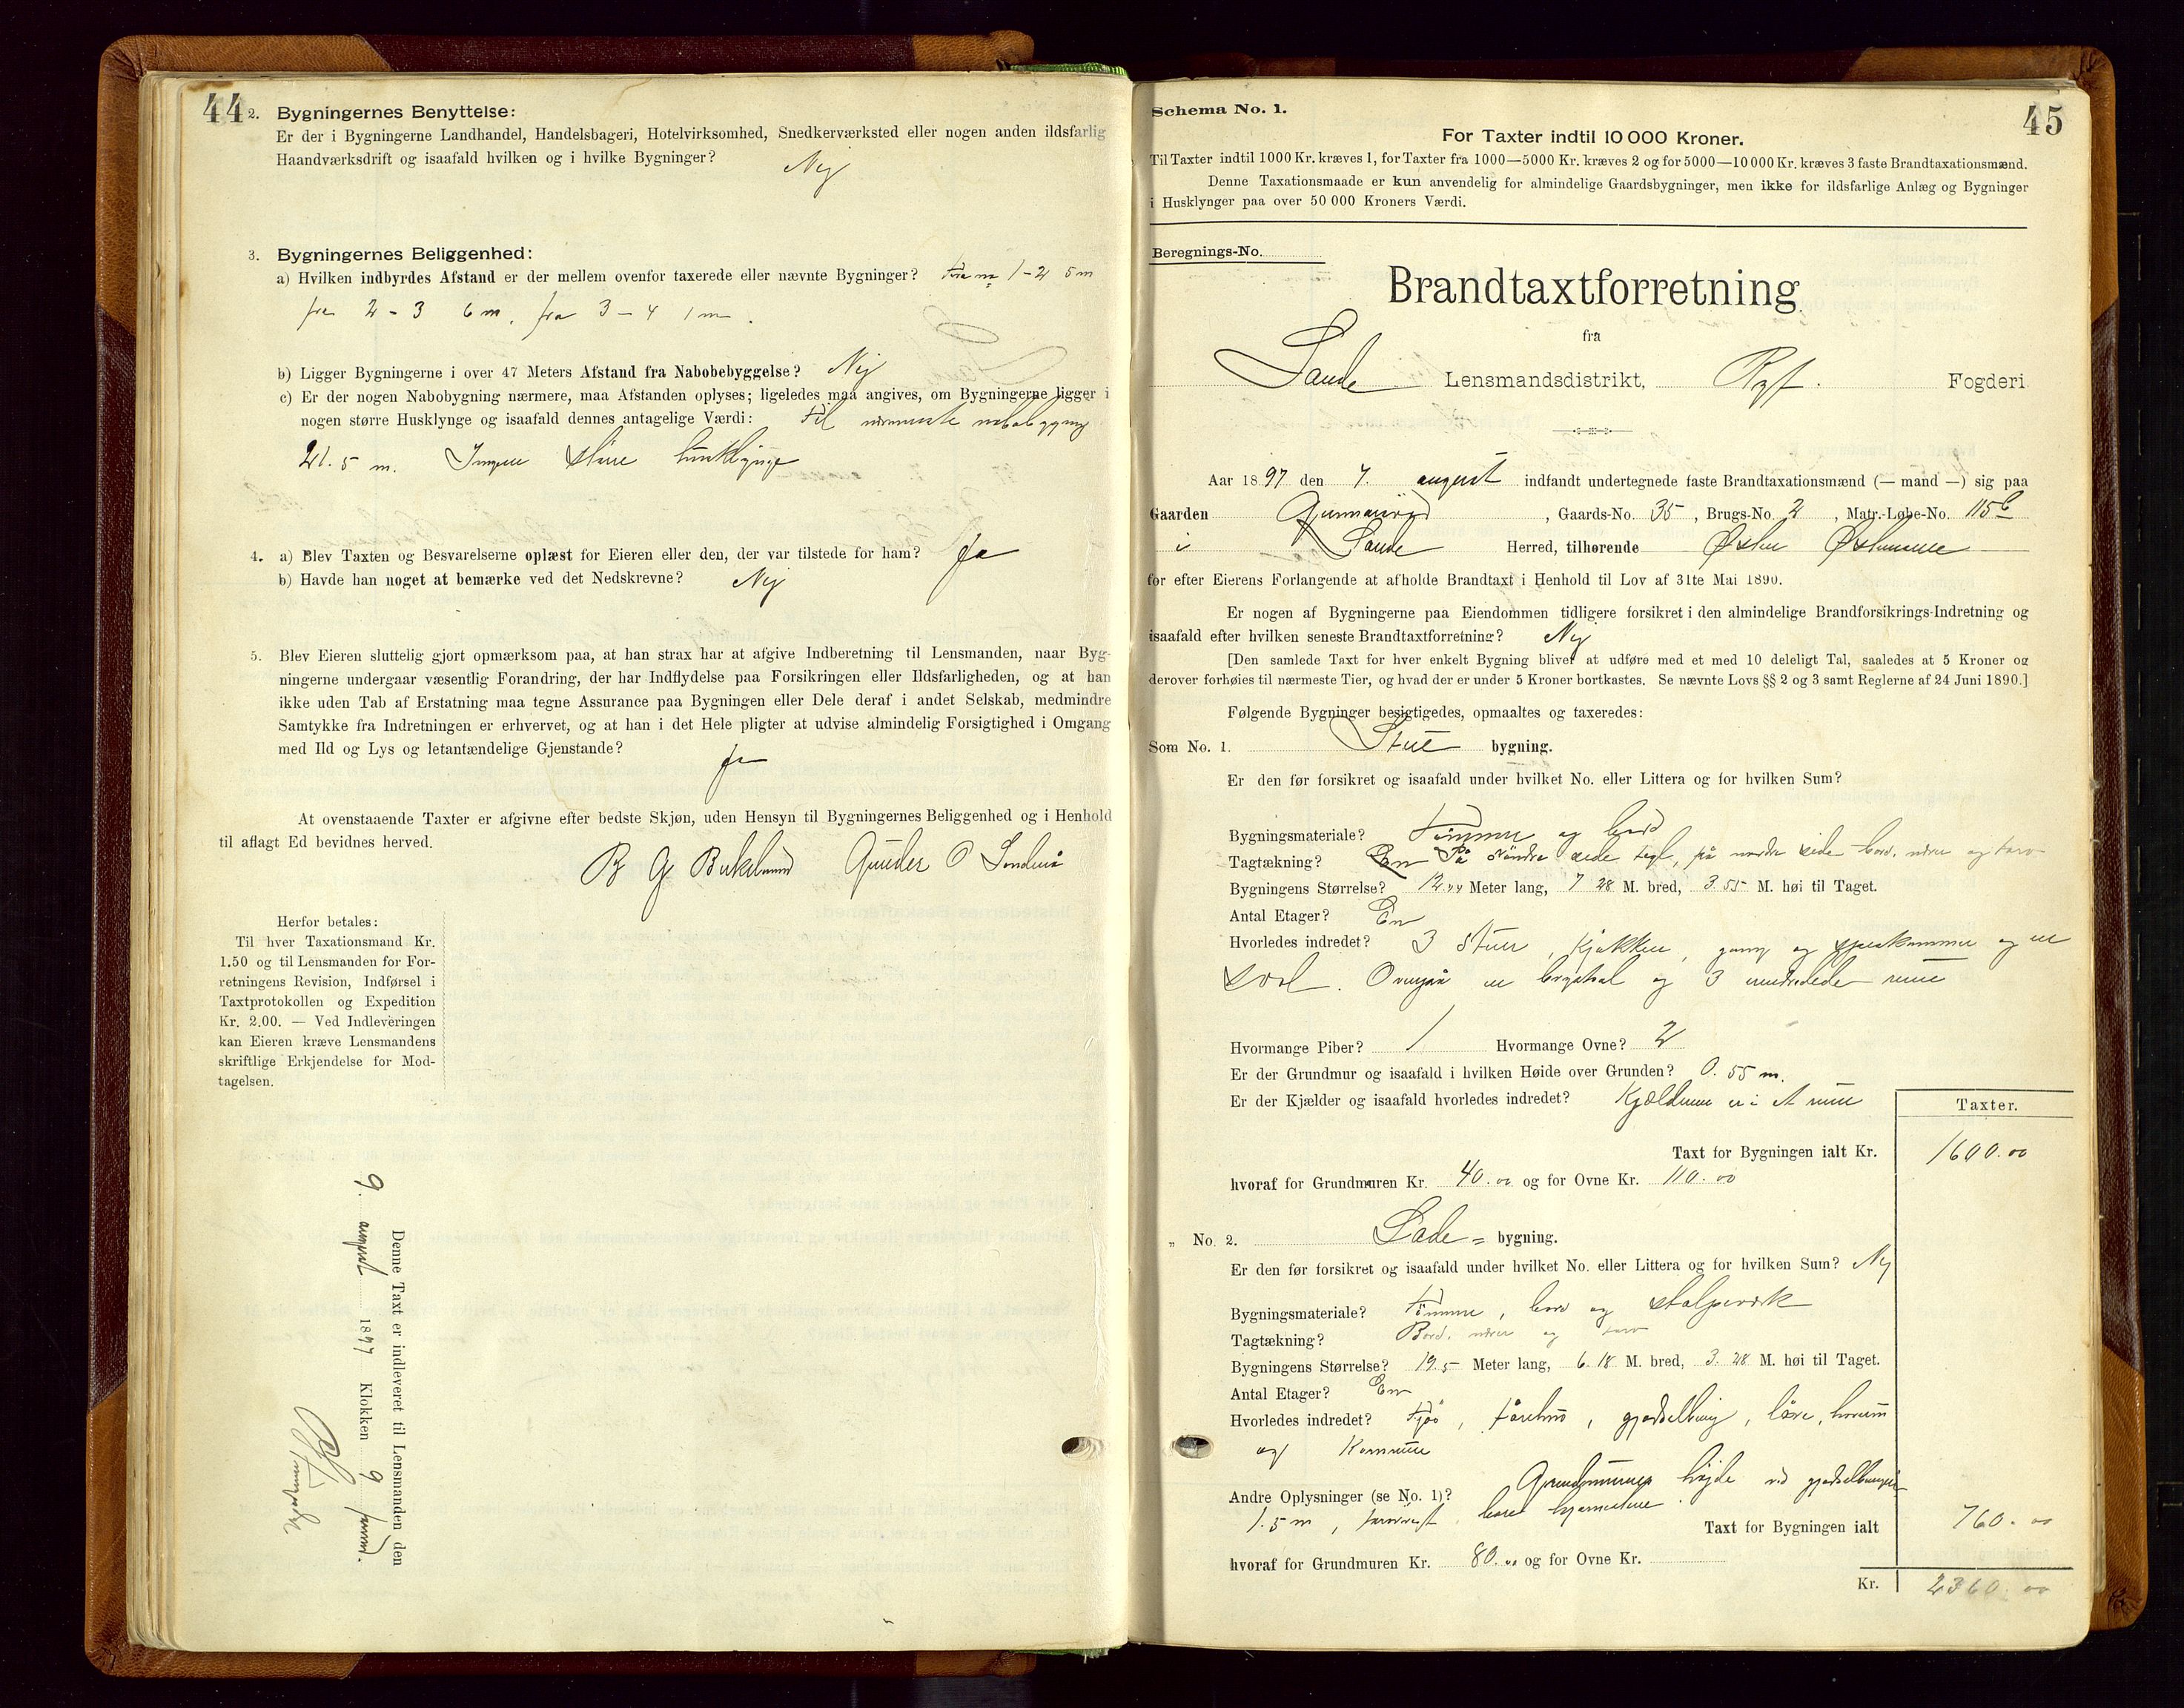 44
2. Bygningernes Benyttelse:
Er der i Bygningerne Landhandel, Handelsbageri, Hotelvirksomhed, Snedkerværksted eller nogen anden ildsfarlig
Haandværksdrift og isaafald hvilken og i hvilke Bygninger? Nej
3. Bygningernes Beliggenhed:
a) Hvilken indbyrdes Afstand er der mellem ovenfor taxerede eller nævnte Bygninger? Fra 1-2 5 m
fra 2-3 6 m, fra 3-4 1 m.
b) Ligger Bygningerne i over 47 Meters Afstand fra Nabobebyggelse? Nej
c) Er der nogen Nabobygning nærmere, maa Afstanden oplyses; ligeledes maa angives, om Bygningerne ligger i
nogen større Husklynge og isaafald dennes antagelige Værdi: til nærmeste nabobygning
21.5 m. Ingen större husklynge
4. a) Blev Taxten og Besvarelserne oplæst for Eieren eller den, der var tilstede for ham? Ja
b) Havde han noget at bemærke ved det Nedskrevne? Nej
5. Blev Eieren sluttelig gjort opmærksom paa, at han strax har at afgive Indberetning til Lensmanden, naar Byg-
ningerne undergaar væsentlig Forandring, der har Indflydelse paa Forsikringen eller Ildsfarligheden, og at han
ikke uden Tab af Erstatning maa tegne Assurance paa Bygningen eller Dele deraf i andet Selskab, medmindre
Samtykke fra Indretningen er erhvervet, og at han i det Hele pligter at udvise almindelig Forsigtighed i Omgang
med Ild og Lys og letantændelige Gjenstande?
Ja
At ovenstaaende Taxter er afgivne efter bedste Skjøn, uden Hensyn til Bygningernes Beliggenhed og i Henhold
til aflagt Ed bevidnes herved.
B G Birkeland Gunder O
Herfor betales:
Til hver Taxationsmand Kr.
1.50 og til Lensmanden for For-
retningens Revision, Indførsel i
Taxtprotokollen og Expedition
Kr. 2.00. — Ved Indleveringen
kan Eieren kræve Lensmandens
skriftlige Erkjendelse for Mod-
tagelsen.
Denne Taxt er indleveret til Lensmanden den
9. august 1897 Klokken 9 formd.
45
Schema No. 1.
For Taxter indtil 10 000 Kroner.
Til Taxter indtil 1000 Kr. kræves 1, for Taxter fra 1000—5000 Kr. kræves 2 og for 5000—10 000 Kr. kræves 3 faste Brandtaxationsmænd.
Denne Taxationsmaade er kun anvendelig for almindelige Gaardsbygninger, men ikke for ildsfarlige Anlæg og Bygninger
i Husklynger paa over 50 000 Kroners Værdi.
Beregnings-No.
Brandtaxtforretning
fra
Sande Lensmandsdistrikt, Ryf. Fogderi
Aar 1897 den 7. august indfandt undertegnede faste Brandtaxationsmænd (— mand —) sig paa
Gaarden , Gaards-No. 35, Brugs-No. 2, Matr.-Løbe-No. 115b
i Sande Herred, tilhørende
for efter Eierens Forlangende at afholde Brandtaxt i Henhold til Lov af 31te Mai 1890.
Er nogen af Bygningerne paa Eiendommen tidligere forsikret i den almindelige Brandforsikrings-Indretning og
isaafald efter hvilken seneste Brandtaxtforretning? Nej
[Den samlede Taxt for hver enkelt Bygning bliver at udføre med et med 10 deleligt Tal, saaledes at 5 Kroner og
derover forhøies til nærmeste Tier, og hvad der er under 5 Kroner bortkastes. Se nævnte Lovs §§ 2 og 3 samt Reglerne af 24 Juni 1890.]
Følgende Bygninger besigtigedes, opmaaltes og taxeredes:
Som No. 1. Stue bygning.
Er den før forsikret og isaafald under hvilket No. eller Littera og for hvilken Sum?
Bygningsmateriale? Tömmer og bord
Tagtækning? På söndre side tegl, på nordre side bord, næver og torv
Bygningens Størrelse? 12.44 Meter lang, 7 28 M. bred, 3.55 M. høi til Taget.
Antal Etager? En
Hvorledes indredet? 3 stuer, kjökken, gang og spiskammer og en
sval. Ovenpå en og 3 uindredede rum
Hvormange Piber? 1 Hvormange Ovne? 2
Er der Grundmur og isaafald i hvilken Høide over Grunden? 0.55 m.
Er der Kjælder og isaafald hvorledes indredet? Kjælderen er i et rum
Taxter.
Taxt for Bygningen ialt Kr. 1600.00
hvoraf for Grundmuren Kr. 40.00 og for Ovne Kr. 110.00
„ No. 2. Lade= bygning.
Er den før forsikret og isaafald under hvilket No. eller Littera og for hvilken Sum? Nej
Bygningsmateriale? Tömmer, bord og stolpeverk
Tagtækning? Bord, næver og torv
Bygningens Størrelse? 19.5 Meter lang, 6.18 M. bred, 3.28 M. høi til Taget.
Antal Etager? En
Hvorledes indredet? Fjös, fårehus, gjödselbinge, låve, hörum
og kornrum
Andre Oplysninger (se No. 1)? Grundmurens höjde ved gjödselbingen
1.5 m, forövrigt bare hjörnestene
Taxt for Bygningen ialt 760.00
hvoraf for Grundmuren Kr. 80.00 og for Ovne Kr.
Kr. 2360.00